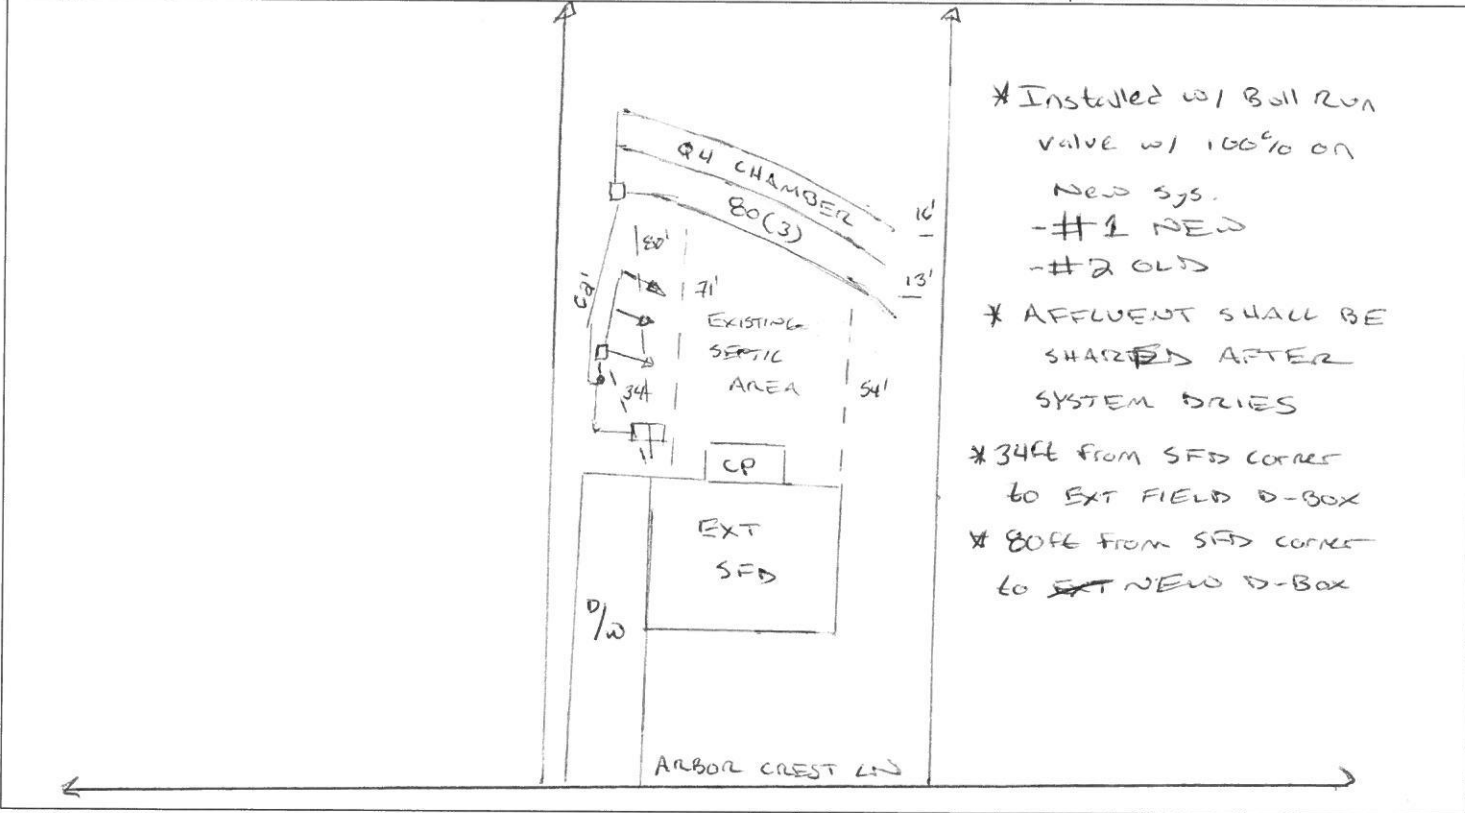 Q4 CHAMBER
80(3)
16'
13'
80'
71'
62'
EXISTING
SEPTIC
AREA
34'
54'
CP
EXT
SFD
D/W
ARBOR CREST LN
* Installed w/ Bull Run
valve w/ 100% on
New sys.
-#1 NEW
-#2 OLD
* AFFLUENT SHALL BE
SHARED AFTER
SYSTEM DRIES
* 34ft from SFD corner
to EXT FIELD D-BOX
* 80ft from SFD corner
to EXT NEW D-Box